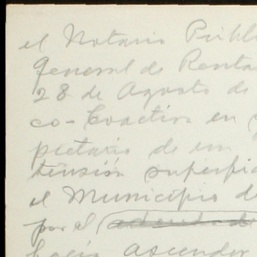 el Notario Públ
general de Renta
28 de Agosto de
co-Coactiva en
pietario de un
tensión superfic
el Municipio de
por el adeudado
hacía ascender